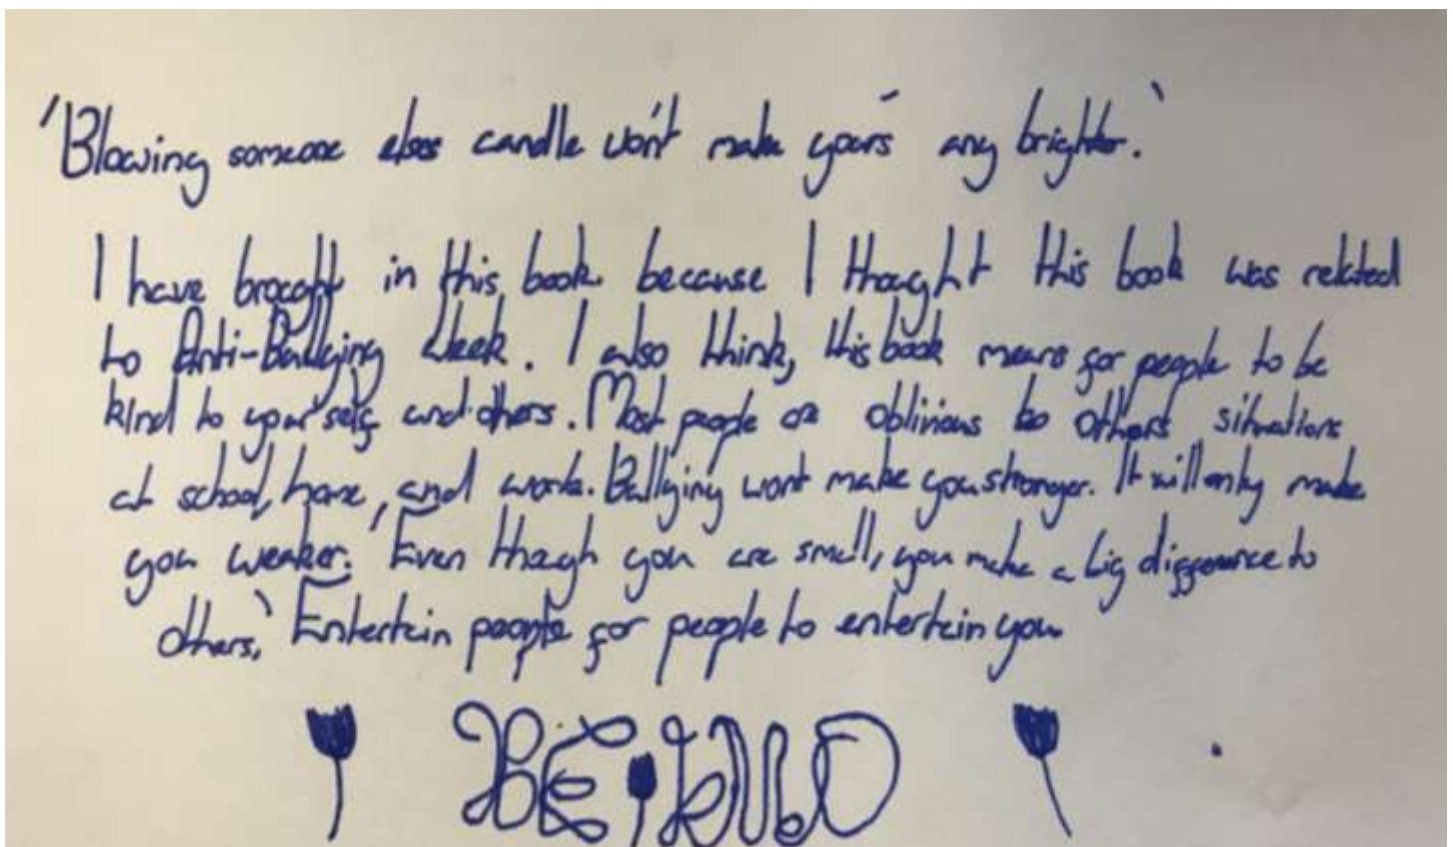 'Blowing someone elses candle won't make yours any brighter.'
I have brought in this book because I thought this book was related
to Anti-Bullying Week. I also think, this book means for people to be
kind to your self, and others. Most people are oblivious to others situations
at school, home, and work. Bullying wont make you stronger. It will only make
you weaker. 'Even though you are small, you make a big difference to
others,' Entertain people for people to entertain you.
BE KIND